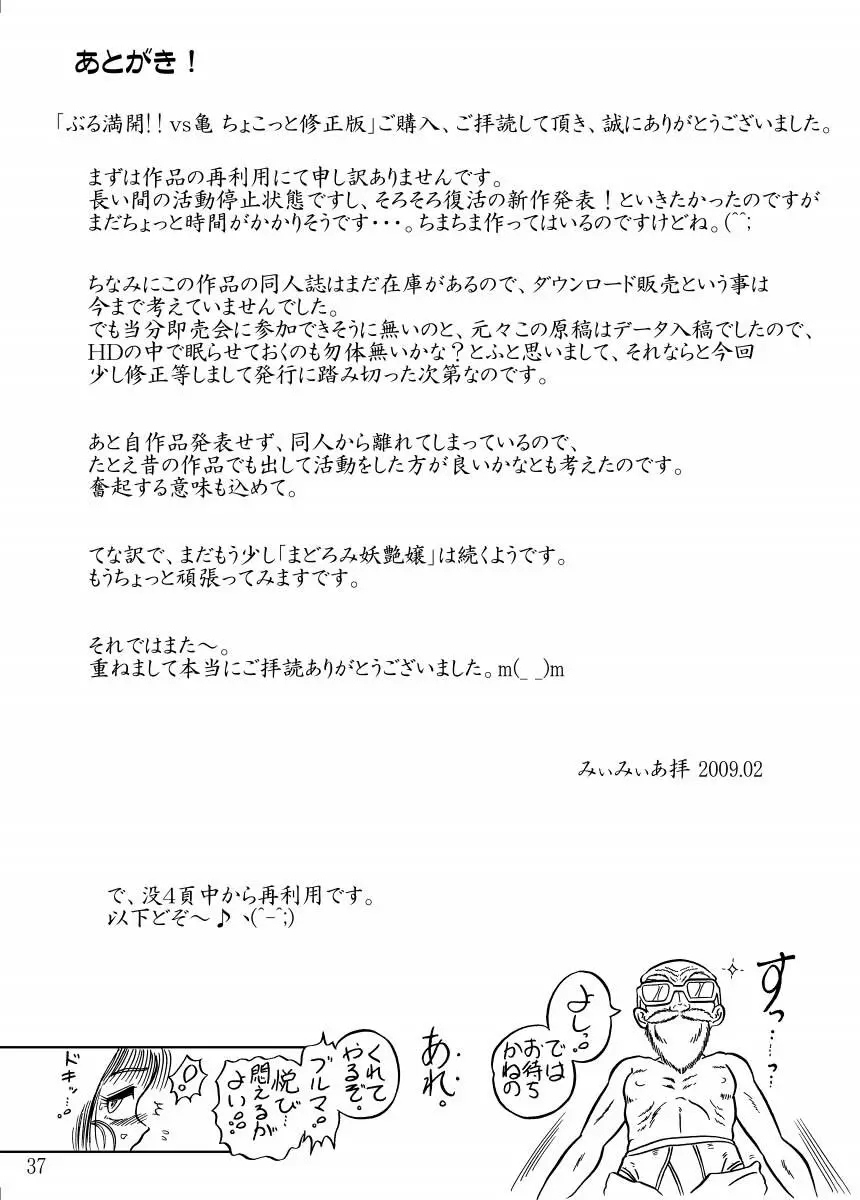 あとがき！
「ぶる満開!！vs亀 ちょこっと修正版」ご購入、ご拝読して頂き、誠にありがとうございました。
まずは作品の再利用にて申し訳ありませんです。
長い間の活動停止状態ですし、そろそろ復活の新作発表！といきたかったのですが
まだちょっと時間がかかりそうです・・・。ちまちま作ってはいるのですけどね。(^^;
ちなみにこの作品の同人誌はまだ在庫があるので、ダウンロード販売という事は
今まで考えていませんでした。
でも当分即売会に参加できそうに無いのと、元々この原稿はデータ入稿でしたので、
HDの中で眠らせておくのも勿体無いかな？とふと思いまして、それならと今回
少し修正等しまして発行に踏み切った次第なのです。
あと自作品発表せず、同人から離れてしまっているので、
たとえ昔の作品でも出して活動をした方が良いかなとも考えたのです。
奮起する意味も込めて。
てな訳で、まだもう少し「まどろみ妖艶嬢」は続くようです。
もうちょっと頑張ってみますです。
それではまた～。
重ねまして本当にご拝読ありがとうございました。m(_ _)m
みぃみぃあ拝 2009.02
で、没4頁中から再利用です。
以下どぞ～♪ヽ(^-^;)
すっ…
よしっ
では
お待ち
かねの
あれ。
くれて
やるぞ。
ブルマ
悦び
悶えるが
よい
!
ドキッ…
37